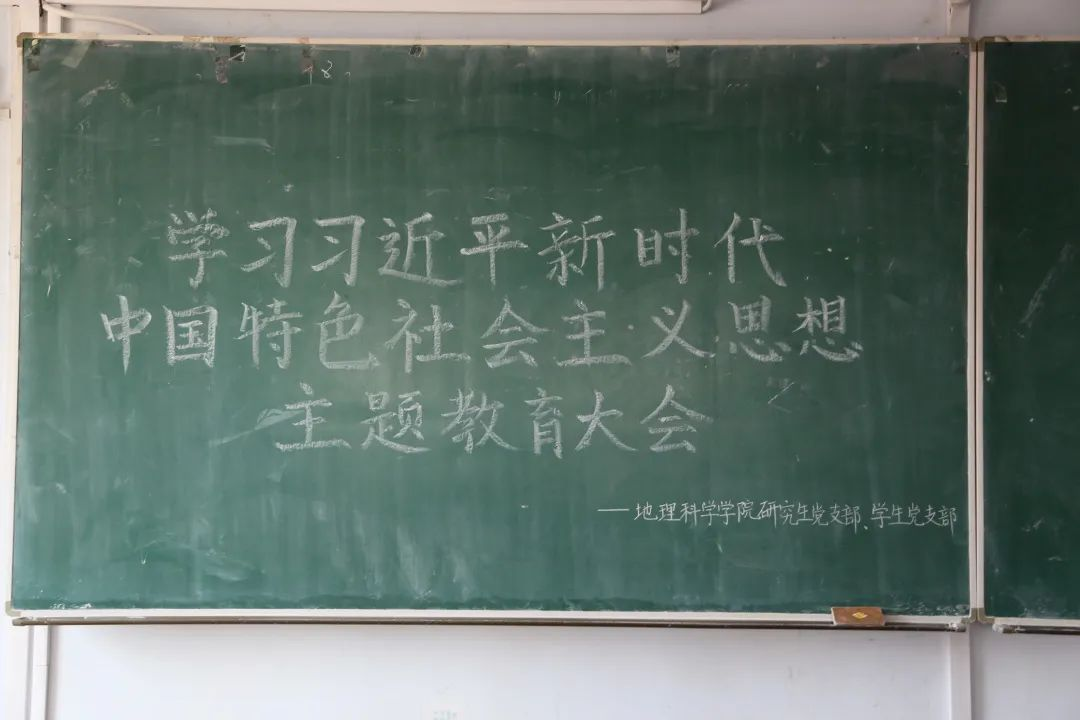 18
学习习近平新时代
中国特色社会主义思想
主题教育大会
——地理科学学院研究生党支部、学生党支部